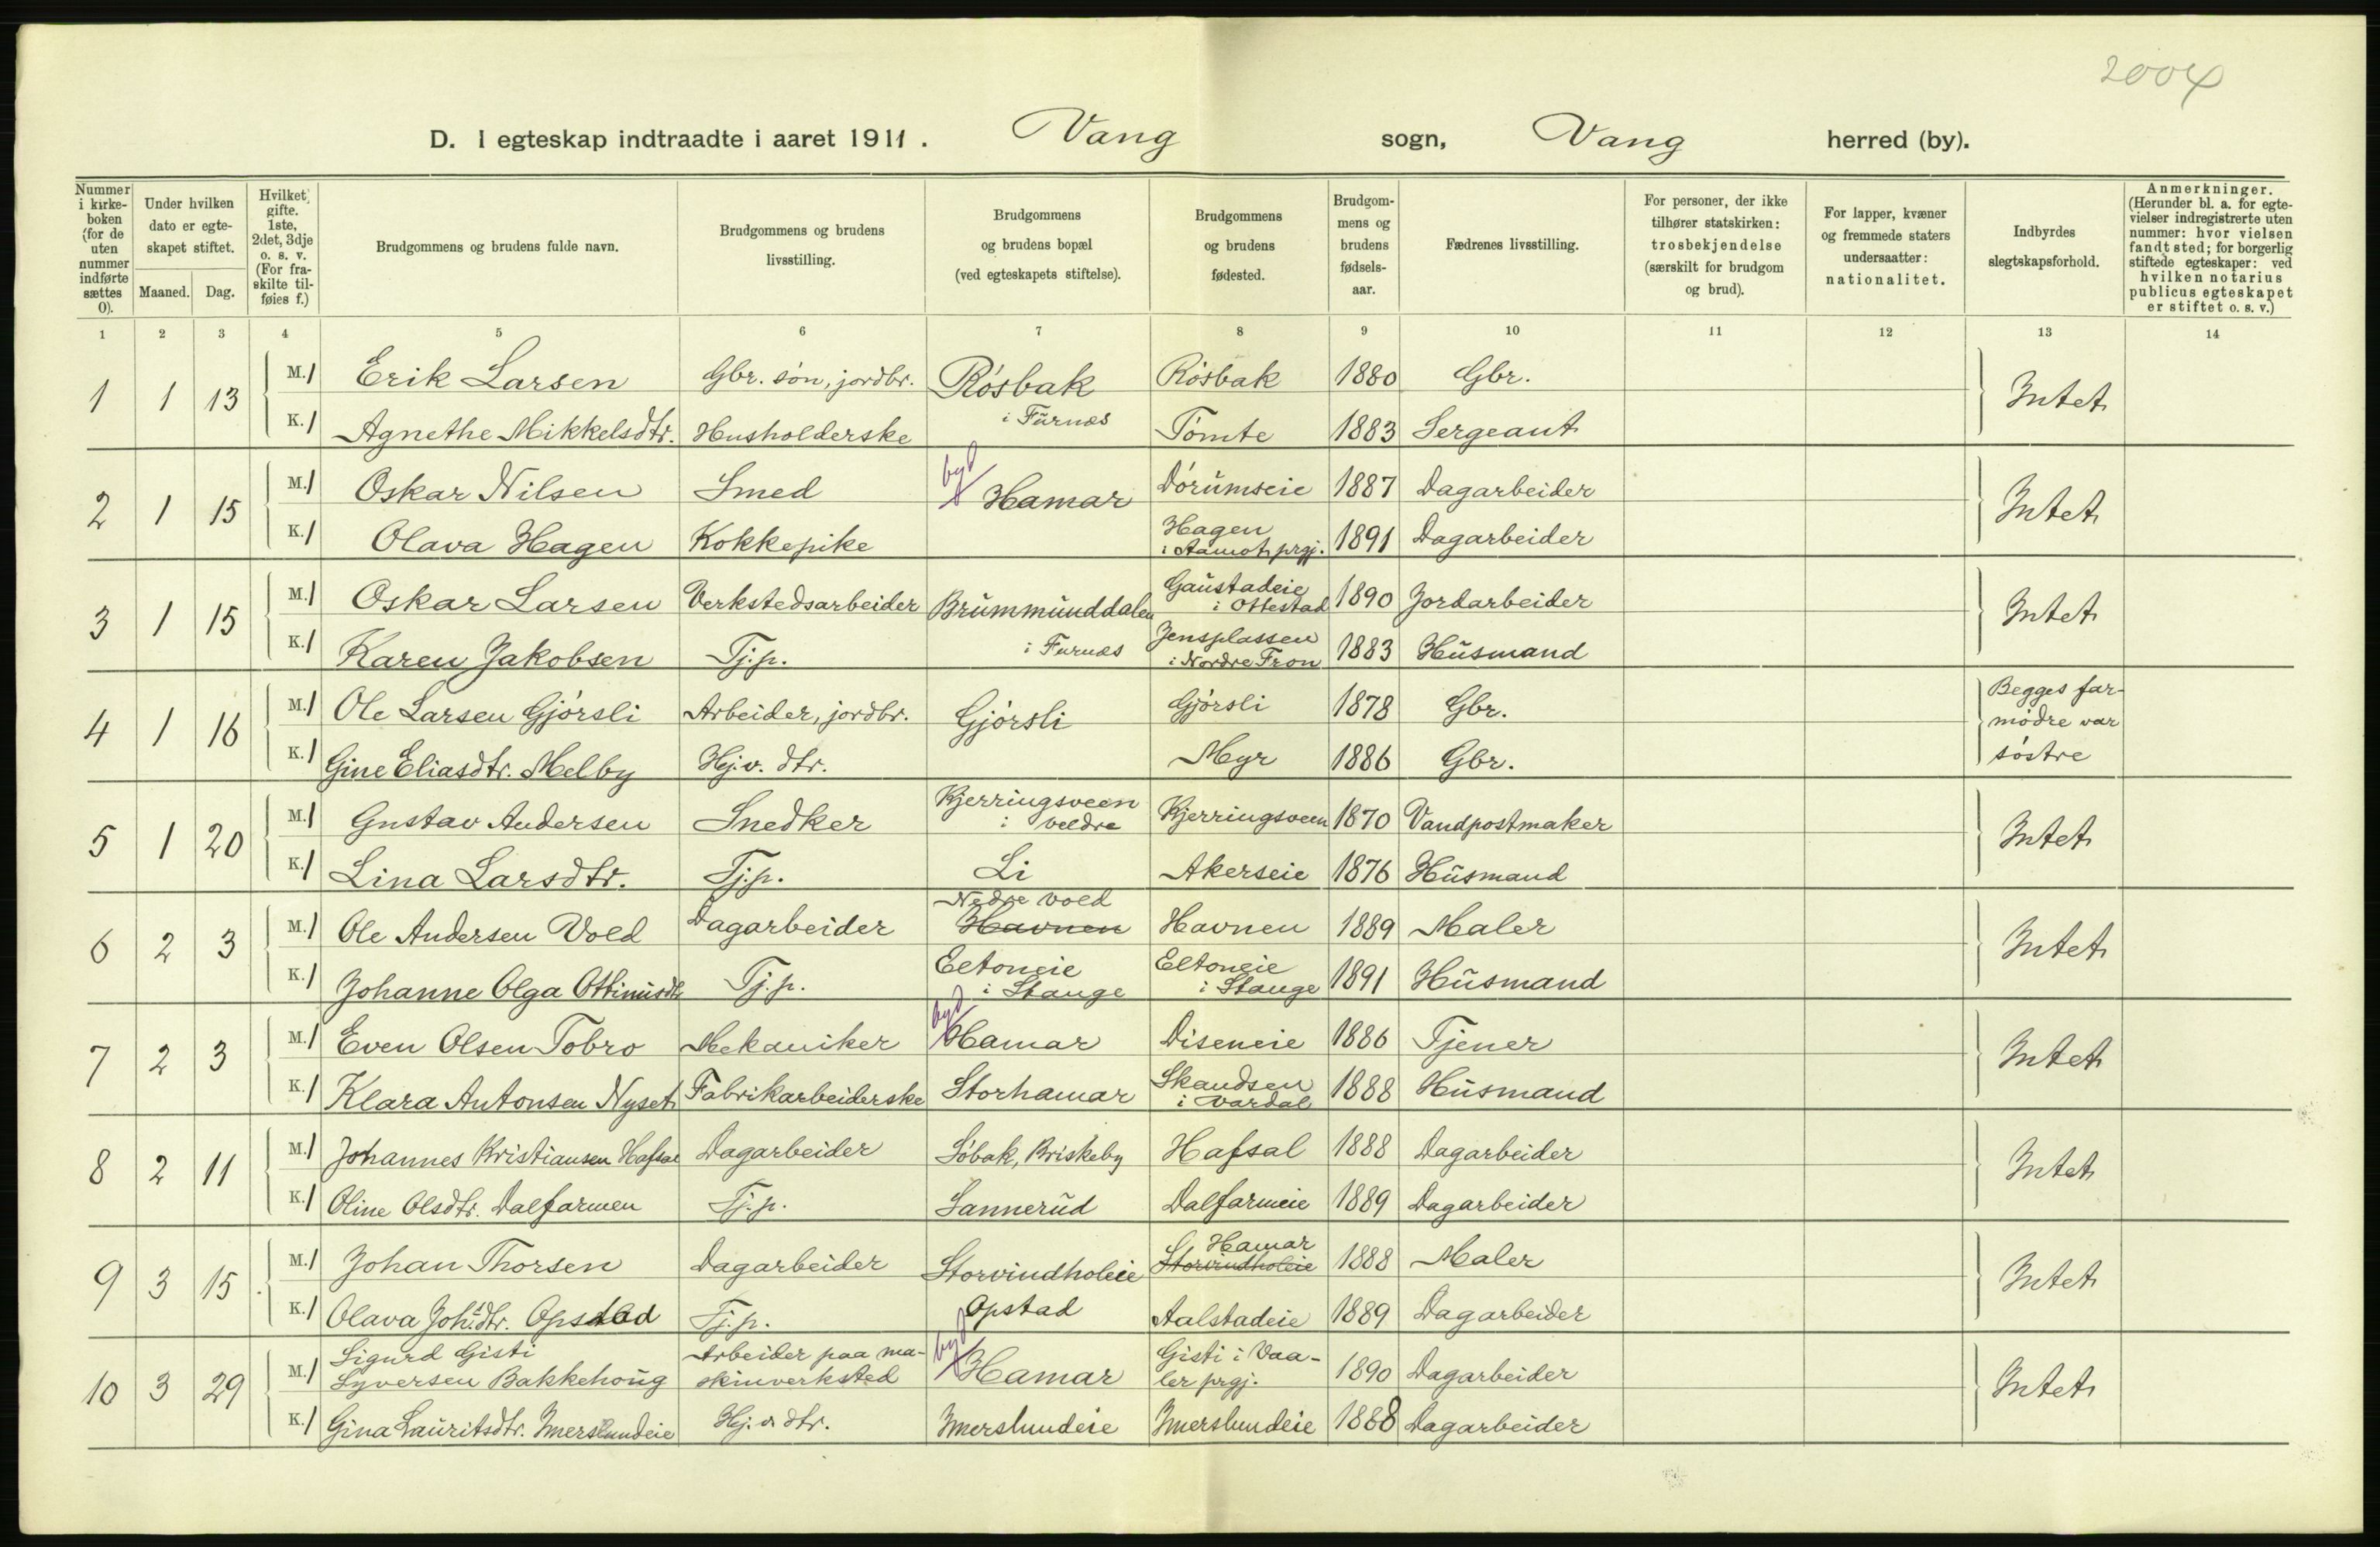 2004
D. I egteskap indtraadte i aaret 1911. Vang sogn, Vang herred (by).
Nummer i kirke-boken (for de uten nummer indførte sættes 0).
Under hvilken dato er egte-skapet stiftet.
Maaned. Dag.
Hvilket gifte. 1ste, 2det, 3dje o. s. v. (For fra-skilte til-føies f.)
Brudgommens og brudens fulde navn.
Brudgommens og brudens livsstilling.
Brudgommens og brudens bopæl (ved egteskapets stiftelse).
Brudgommens og brudens fødested.
Brudgom-mens og brudens fødsels-aar.
Fædrenes livsstilling.
For personer, der ikke tilhører statskirken: trosbekjendelse (særskilt for brudgom og brud).
For lapper, kvæner og fremmede staters undersaatter: nationalitet.
Indbyrdes slegtskapsforhold.
Anmerkninger. (Herunder bl. a. for egte-vielser indregistrerte uten nummer: hvor vielsen fandt sted; for borgerlig stiftede egteskaper: ved hvilken notarius publicus egteskapet er stiftet o. s. v.)
1 2 3 4 5 6 7 8 9 10 11 12 13 14
1 1 13 M. 1 Erik Larsen Gbr. søn, jordbr. Røsbak Røsbak 1880 Gbr. Intet
K. 1 Agnethe Mikkelsdtr. Husholderske i Furnæs Tomte 1883 Sergeant
2 1 15 M. 1 Oskar Nilsen Smed byd Hamar Dørumseie 1887 Dagarbeider Intet
K. 1 Olava Hagen Kokkepike Hagen i Aamot prgj. 1891 Dagarbeider
3 1 15 M. 1 Oskar Larsen Verkstedsarbeider Brummunddalen Gaustadeie i Ottestad 1890 Jordarbeider Intet
K. 1 Karen Jakobsen Tj.p. i Furnæs Jensplassen i Nordre Fron 1883 Husmand
4 1 16 M. 1 Ole Larsen Gjørsli Arbeider, jordbr. Gjørsli Gjørsli 1878 Gbr. Begges far-mødre var søstre
K. 1 Gine Eliasdtr. Melby Hj.v. dtr. Myr 1886 Gbr.
5 1 20 M. 1 Gustav Andersen Snedker Kjerringsveen i Veldre Kjerringsveen 1870 Vandpostmaker Intet
K. 1 Lina Larsdtr. Tj.p. Li Akerseie 1876 Husmand
6 2 3 M. 1 Ole Andersen Vold Dagarbeider Nedre Vold Havnen Havnen 1889 Maler Intet
K. 1 Johanne Olga Ottinusdtr Tj.p. Eltoneie i Stange Eltoneie i Stange 1891 Husmand
7 2 3 M. 1 Even Olsen Tobro Mekaniker byd Hamar Diseneie 1886 Tjener Intet
K. 1 Klara Antonsen Nyset Fabrikarbeiderske Storhamar Skandsen i Vardal 1888 Husmand
8 2 11 M. 1 Johannes Kristiansen Hafsal Dagarbeider Søbak, Briskeby Hafsal 1888 Dagarbeider Intet
K. 1 Oline Olsdtr. Dalfarmen Tj.p. Sannerud Dalfarmeie 1889 Dagarbeider
9 3 15 M. 1 Johan Thorsen Dagarbeider Storvindholeie Hamar Storvindholeie 1888 Maler Intet
K. 1 Olava Johsdtr. Opstad Tj.p. Opstad Aalstadeie 1889 Dagarbeider
10 3 29 M. 1 Sigurd Gisti Syversen Bakkehoug Arbeider paa ma-skinverksted byd Hamar Gisti i Vaa-ler prgj. 1890 Dagarbeider Intet
K. 1 Gina Lauritsdtr. Imerslundeie Hj.v. dtr. Imerslundeie Imerslundeie 1888 Dagarbeider